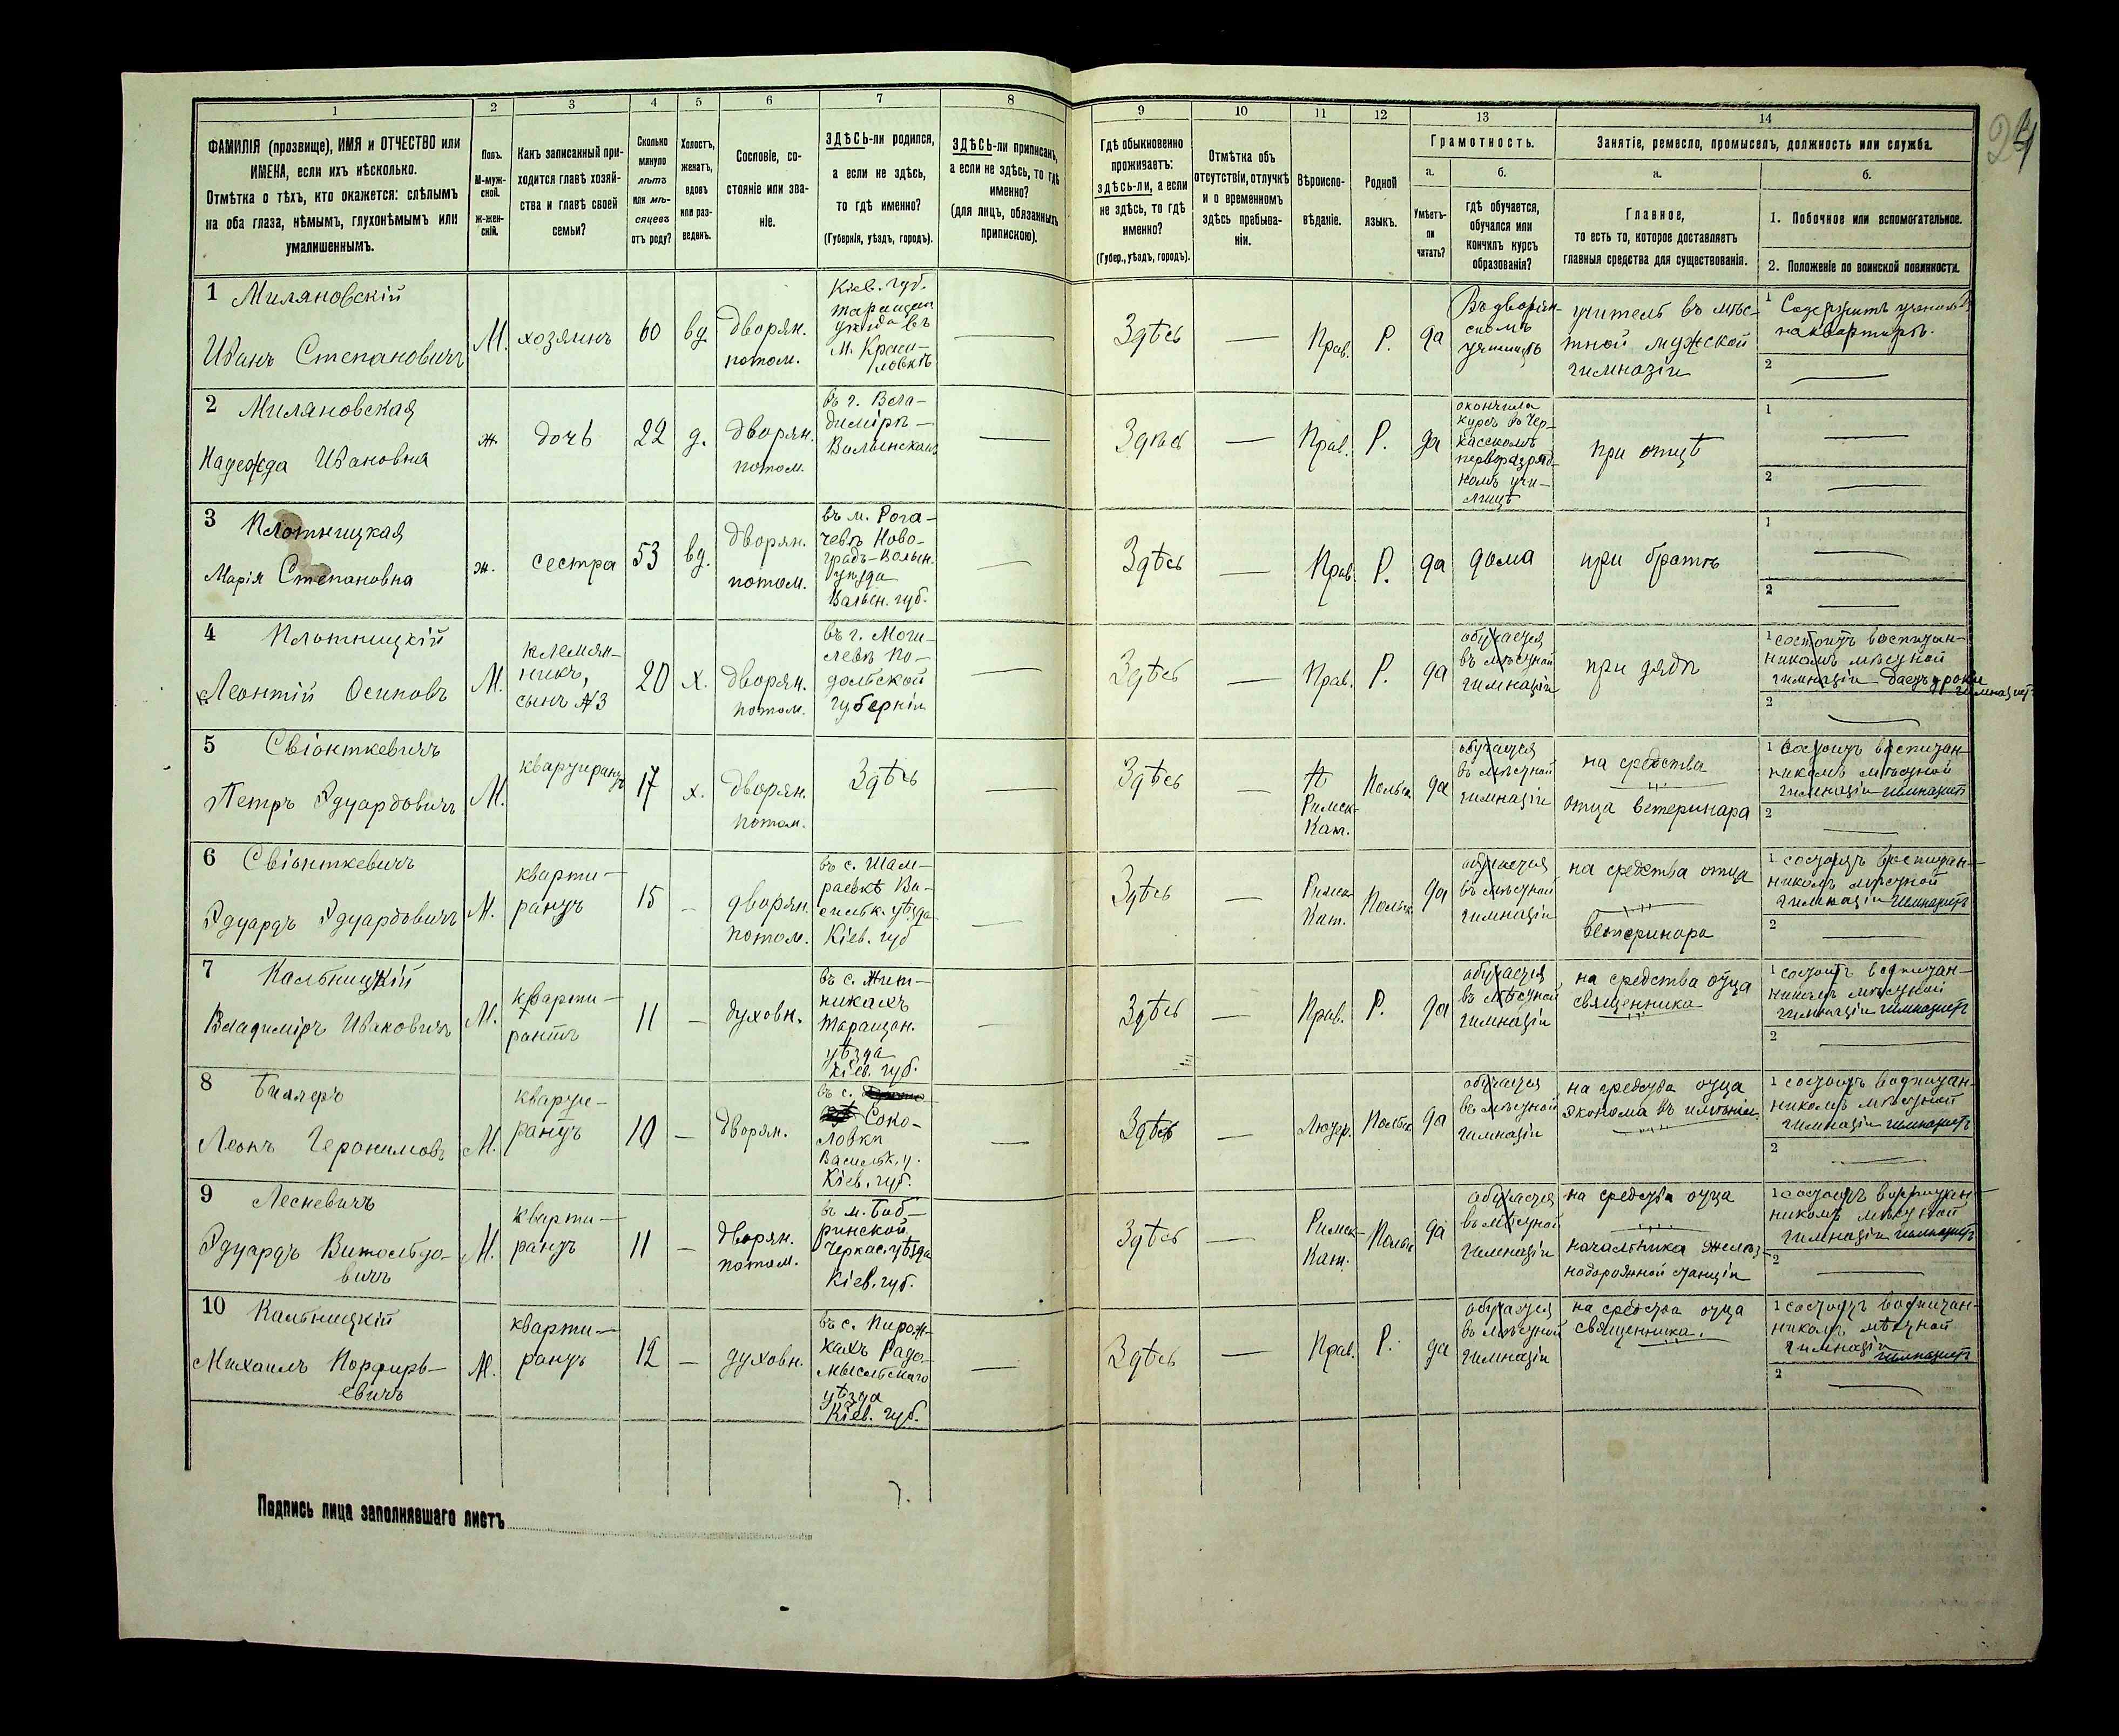 24
1 2 3 4 5 6 7 8 9 10 11 12 13 14
ФАМИЛІЯ (прозвище), ИМЯ и ОТЧЕСТВО или
ИМЕНА, если ихъ нѣсколько.
Отмѣтка о тѣхъ, кто окажется: слѣпымъ
на оба глаза, нѣмымъ, глухонѣмымъ или
умалишеннымъ.
Полъ.
М-муж-
ской.
Ж-жен-
скій.
Какъ записанный при-
ходится главѣ хозяй-
ства и главѣ своей
семьи?
Сколько
минуло
лѣтъ
или мѣ-
сяцевъ
отъ роду?
Холостъ,
женатъ,
вдовъ
или раз-
веденъ.
Сословіе, со-
стояніе или зва-
ніе.
ЗДѢСЬ-ли родился,
а если не здѣсь,
то гдѣ именно?
(Губернія, уѣздъ, городъ).
ЗДѢСЬ-ли приписанъ,
а если не здѣсь, то гдѣ
именно?
(для лицъ, обязанныхъ
припискою).
Гдѣ обыкновенно
проживаетъ:
здѣсь-ли, а если
не здѣсь, то гдѣ
именно?
(Губер., уѣздъ, городъ).
Отмѣтка объ
отсутствіи, отлучкѣ
и о временномъ
здѣсь пребыва-
ніи.
Вѣроиспо-
вѣданіе.
Родной
языкъ.
Грамотность.
а.
Умѣетъ-
ли
читать?
б.
гдѣ обучается,
обучался или
кончилъ курсъ
образованія?
Занятіе, ремесло, промыселъ, должность или служба.
а.
Главное,
то есть то, которое доставляетъ
главныя средства для существованія.
б.
1. Побочное или вспомогательное.
2. Положеніе по воинской повинности.
1 Миляновскій
Иванъ Степановичъ
М.
хозяинъ
60
вд.
дворян.
потом.
Кіев. губ.
Таращан
уѣзда въ
м. Краси-
ловкѣ
Здѣсь
Прав.
Р.
да
Въ дворян-
скомъ
училищѣ
учитель въ мѣс-
тной мужской
гимназіи
1 Содержитъ учени
на квартирѣ.
2
2 Миляновская
Надежда Ивановна
ж.
дочь
22
д.
дворян.
потом.
въ г. Вла-
димірѣ-
Волынскомъ
Здѣсь
Прав.
Р.
да
окончила
курсъ въ Чер-
касскомъ
перворазряд-
номъ учи-
лищѣ
при отцѣ
1
2
3 Плотницкая
Марія Степановна
ж.
сестра
53
вд.
дворян.
потом.
въ м. Рога-
чевѣ Ново-
градъ-Волын.
уѣзда
Волын. губ.
Здѣсь
Прав.
Р.
да
дома
при братѣ
1
2
4 Плотницкій
Леонтій Осиповъ
М.
племян-
никъ,
сынъ №3
20
х.
дворян.
потом.
въ г. Моги-
левѣ По-
дольской
губерніи
Здѣсь
Прав.
Р.
да
обучается
въ мѣстной
гимназіи
при дядѣ
1 состоитъ воспитан-
никомъ мѣстной
гимназіи даетъ уроки
гимназистъ
2
5 Свіонткевичъ
Петръ Эдуардовичъ
М.
квартирантъ
17
х.
дворян.
потом.
Здѣсь
Здѣсь
Римск-
Кат.
Польск
да
обучается
въ мѣстной
гимназіи
на средства
отца ветеринара
1 состоитъ воспитан-
никомъ мѣстной
гимназіи гимназистъ
2
6 Свіонткевичъ
Эдуардъ Эдуардовичъ
М.
кварти-
рантъ
15
дворян.
потом.
въ с. Шам-
раевкѣ Ва-
сильк. уѣзда
Кіев. губ
Здѣсь
Римск
Кат.
Польск
да
обучается
въ мѣстной
гимназіи
на средства отца
ветеринара
1 состоитъ воспитан-
никомъ мѣстной
гимназіи гимназистъ
2
7 Кальницкій
Владиміръ Ивановичъ
М.
кварти-
рантъ
11
духовн.
въ с. Жит-
никахъ
Таращан.
уѣзда
Кіев. губ.
Здѣсь
Прав.
Р.
да
обучается
въ мѣстной
гимназіи
на средства отца
священника
1 состоитъ воспитан-
никомъ мѣстной
гимназіи гимназистъ
2
8
Леонъ Іеронимовъ
М.
кварти-
рантъ
10
дворян.
въ с.
Соко-
ловкѣ
Васильк. у.
Кіев. губ.
Здѣсь
Лютер.
Польск
да
обучается
въ мѣстной
гимназіи
на средства отца
эконома въ имѣніи
1 состоитъ воспитан-
никомъ мѣстной
гимназіи гимназистъ
2
9 Лесневичъ
Эдуардъ Витольдо-
вичъ
М.
кварти-
рантъ
11
дворян.
потом.
въ м. Боб-
ринской
Черкас. уѣзда
Кіев. губ.
Здѣсь
Римск
Кат.
Польск
да
обучается
въ мѣстной
гимназіи
на средства отца
начальника желѣз-
нодорожной станціи
1 состоитъ воспитан-
никомъ мѣстной
гимназіи гимназистъ
2
10 Кальницкій
Михаилъ Порфирь-
евичъ
М.
кварти-
рантъ
12
духовн.
въ с. Пирож-
кахъ Радо-
мысльскаго
уѣзда
Кіев. губ.
Здѣсь
Прав.
Р.
да
обучается
въ мѣстной
гимназіи
на средства отца
священника.
1 состоитъ воспитан-
никомъ мѣстной
гимназіи
гимназистъ
2
Подпись лица заполнявшаго листъ